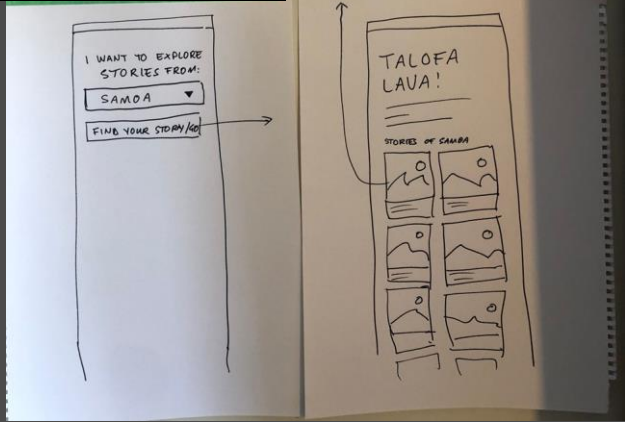 I WANT TO EXPLORE
STORIES FROM:
SAMOA
FIND YOUR STORY/GO
TALOFA
LAVA!
STORIES OF SAMOA